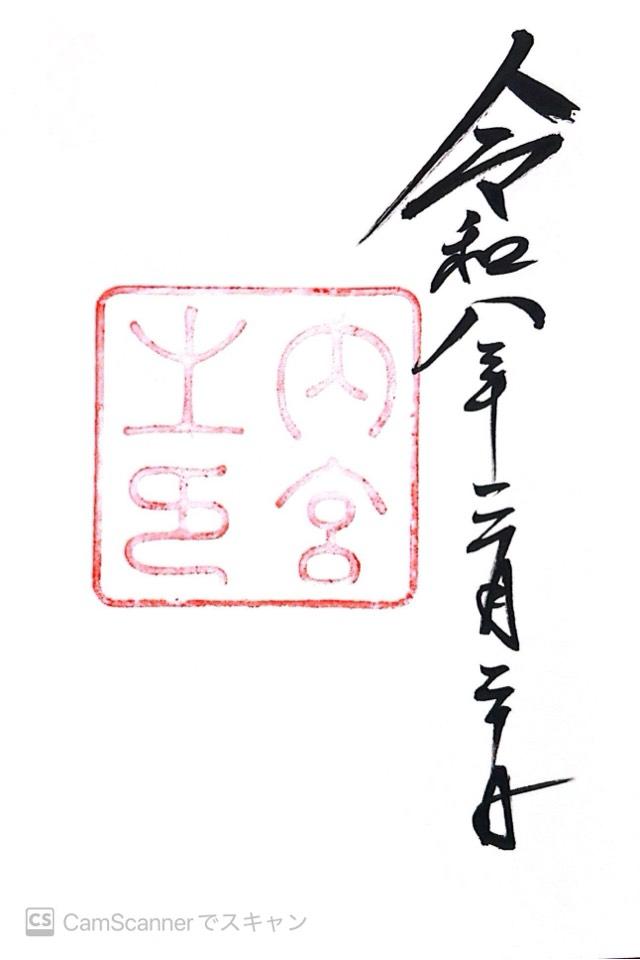 令和八年二月二十日
内宮
之印
CS CamScannerでスキャン